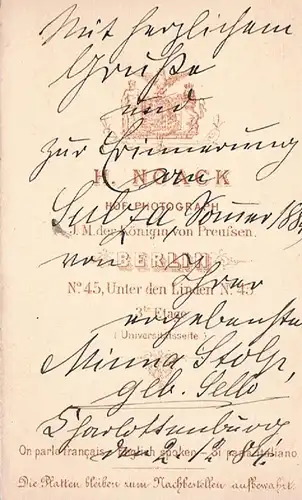 Mit herzlichem
Gruße
und
zur Erinnerung
H. NOACK
an
HOF-PHOTOGRAPH
Sulza Somer 188
J. M. der Königin von Preußen.
von
BERLIN
Ihrer
No. 45, Unter den Linden No. 45
3te Etage
ergebenste
(Universitätsseite)
Minna Stolp,
geb. Sello
Charlottenburg
On parle français - English spoken - Si parla italiano
den 2/12 84.
Die Platten bleiben zum Nachbestellen aufbewahrt.